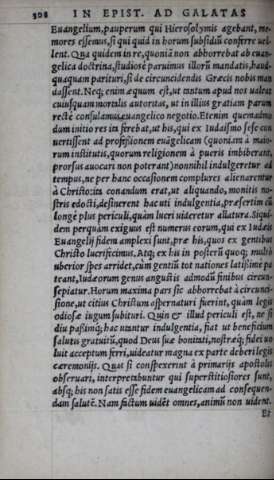 308 IN EPIST. AD GALATAS
Euangelium, pauperum qui Hierosolymis agebant, me-
mores essemus, si qui quid in horum subsidiū conferre uel-
lent. Qua quidem in re, quoniā non abhorrebat ab euan-
gelica doctrina, studiose paruimus illorū mandatis, haud-
quaquam parituri, si de circuncidendis Græcis nobis man
dassent. Neq; enim æquum est, ut tantum apud nos ualeat
cuiusquam mortalis autoritas, ut in illius gratiam parum
recte consulamus euangelico negotio. Etenim quemadmo
dum initio res ita ferebat, ut his, qui ex Iudaismo sese con
uertissent ad professionem euāgelicam (quoniam à maio-
rum institutis, quorum religionem à pueris imbiberant,
prorsus auocari non poterant) nonnihil indulgeretur ad
tempus, ne per hanc occasionem complures alienarentur
à Christo: ita conandum erat, ut aliquando, monitis no-
stris edocti, desinerent hac uti indulgentia, præsertim cū
longè plus periculi, quàm lucri uideretur allatura. Siqui-
dem perquàm exiguus est numerus eorum, qui ex Iudæis
Euangelij fidem amplexi sunt, præ his, quos ex gentibus
Christo lucrifecimus. Atq; ex his in posterū quoq; multò
uberior spes arridet, cùm gentiū tot nationes latissime pa
teant, Iudæorum genus angustis admodū finibus circun-
sepiatur. Horum maxima pars sic abhorrebat à circunci-
sione, ut citius Christum aspernaturi fuerint, quàm legis
odiosæ iugum subituri. Quin & illud periculi est, ne si
diu passim hac utantur indulgentia, fiat ut beneficium
salutis gratuitū, quod Deus suæ bonitati, nostræq; fidei uo
luit acceptum ferri, uideatur magna ex parte deberi legis
cæremonijs. Quas si conspexerint à primarijs apostolis
obseruari, interpretabuntur qui superstitiosiores sunt,
absq; his non satis esse fidem euangelicam ad consequen-
dam salutē. Nam factum uidēt omnes, animū non uident.
Et